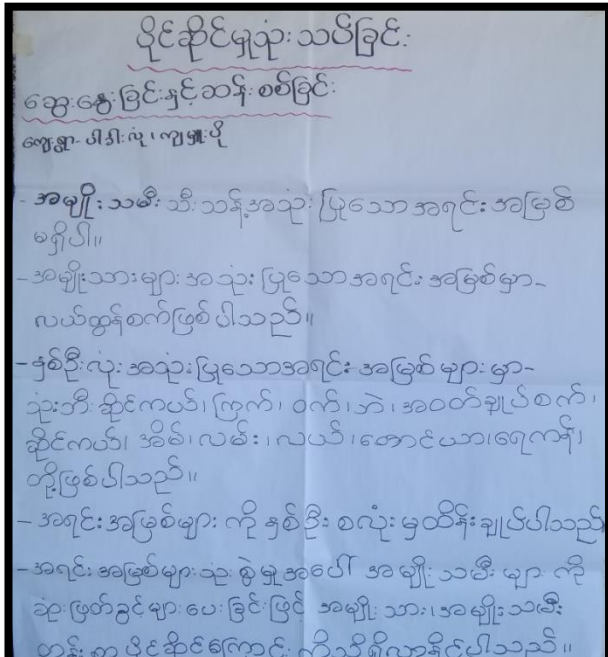 ပိုင်ဆိုင်မှုသုံးသပ်ခြင်း
ဆွေးနွေးခြင်းနှင့်ဆန်းစစ်ခြင်း
ကျေးရွာ-
- အမျိုးသမီး သီးသန့်အသုံးပြုသောအရင်းအမြစ်
မရှိပါ။
- အမျိုးသားများအသုံးပြုသောအရင်းအမြစ်မှာ-
လယ်ထွန်စက်ဖြစ်ပါသည်။
- နှစ်ဦးလုံးအသုံးပြုသောအရင်းအမြစ်များမှာ-
သုံးဘီးဆိုင်ကယ်၊ ကြက်၊ ဝက်၊ ဘဲ၊ အဝတ်ချုပ်စက်၊
ဆိုင်ကယ်၊ အိမ်၊ လမ်း၊ လယ်၊ တောင်ယာ၊ ရေကန်၊
တို့ဖြစ်ပါသည်။
- အရင်းအမြစ်များကို နှစ်ဦးစလုံးမှထိန်းချုပ်ပါသည်
- အရင်းအမြစ်များသုံးစွဲမှုအပေါ် အမျိုးသမီးများကို
ဆုံးဖြတ်ခွင့်များပေးခြင်းဖြင့် အမျိုးသား၊ အမျိုးသမီး
တန်းတူပိုင်ဆိုင်ကြောင်းကိုသိရှိလာနိုင်ပါသည်။